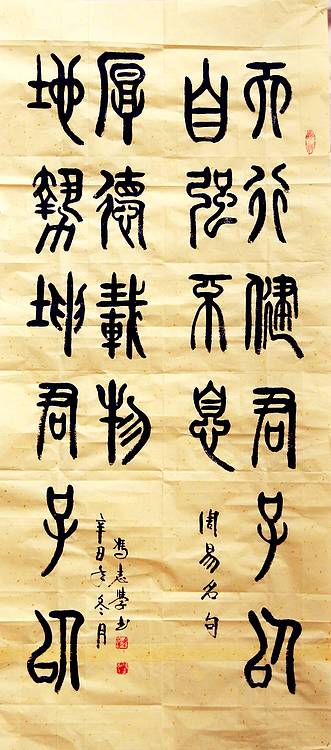 天行健君子以
自强不息
周易名句
地勢坤君子以
厚德載物
辛丑年冬月
馮志學书